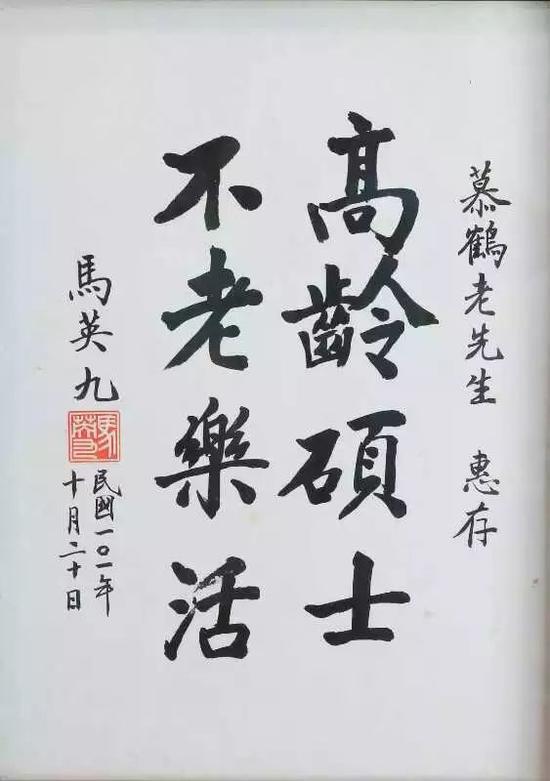 慕鶴老先生 惠存
高齡碩士
不老樂活
馬英九
民國一〇一年
十月二十日